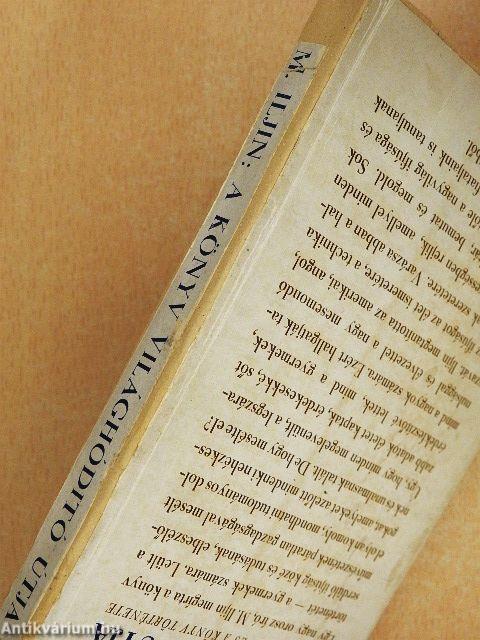 M. ILJIN: A KÖNYV VILÁGHÓDÍTÓ ÚTJA
A KÖNYV TÖRTÉNETE
Egy nagy orosz író, M. Iljin megírta a könyv
történetét — a gyermekek számára. Leült a
serdülő ifjúság közé és tudásának, elbeszélő-
művészetének páratlan gazdagságával mesélt
olyan komoly, mondhatni tudományos dol-
gokat, amelyeket azelőtt mindenki nehézkes-
nek és unalmasnak talált. De hogy mesélte el?
Úgy, hogy minden megelevenült, a legszára-
zabb adatok életet kaptak, érdekesekké, sőt
érdekfeszítővé lettek, mind a gyermekek,
mind a nagyok számára. Ezért hallgatják ta-
nulsággal és élvezettel a nagy mesemondó
szavát. Iljin megtanította az amerikai, angol,
ifjúságot az élet ismeretére, a technika
szeretetére. Varázsa abban a hal-
rejlik, amellyel minden
bemutat és megold. Sok
a nagyvilág ifjúsága és
fiataljaink is tanuljanak
ből.
Antikvárium.hu